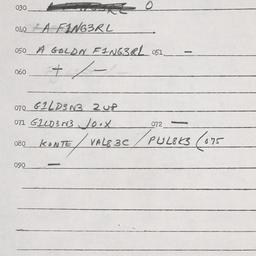 030 O
040 A F1NG3RL
050 A GOLDN F1NG3RL 051 —
060 + / —
070 G1LD3N3 2UP
071 G1LD3N3 JO.X 072 —
080 KONTE / VAL83C / PUL8K3 (075
090 —